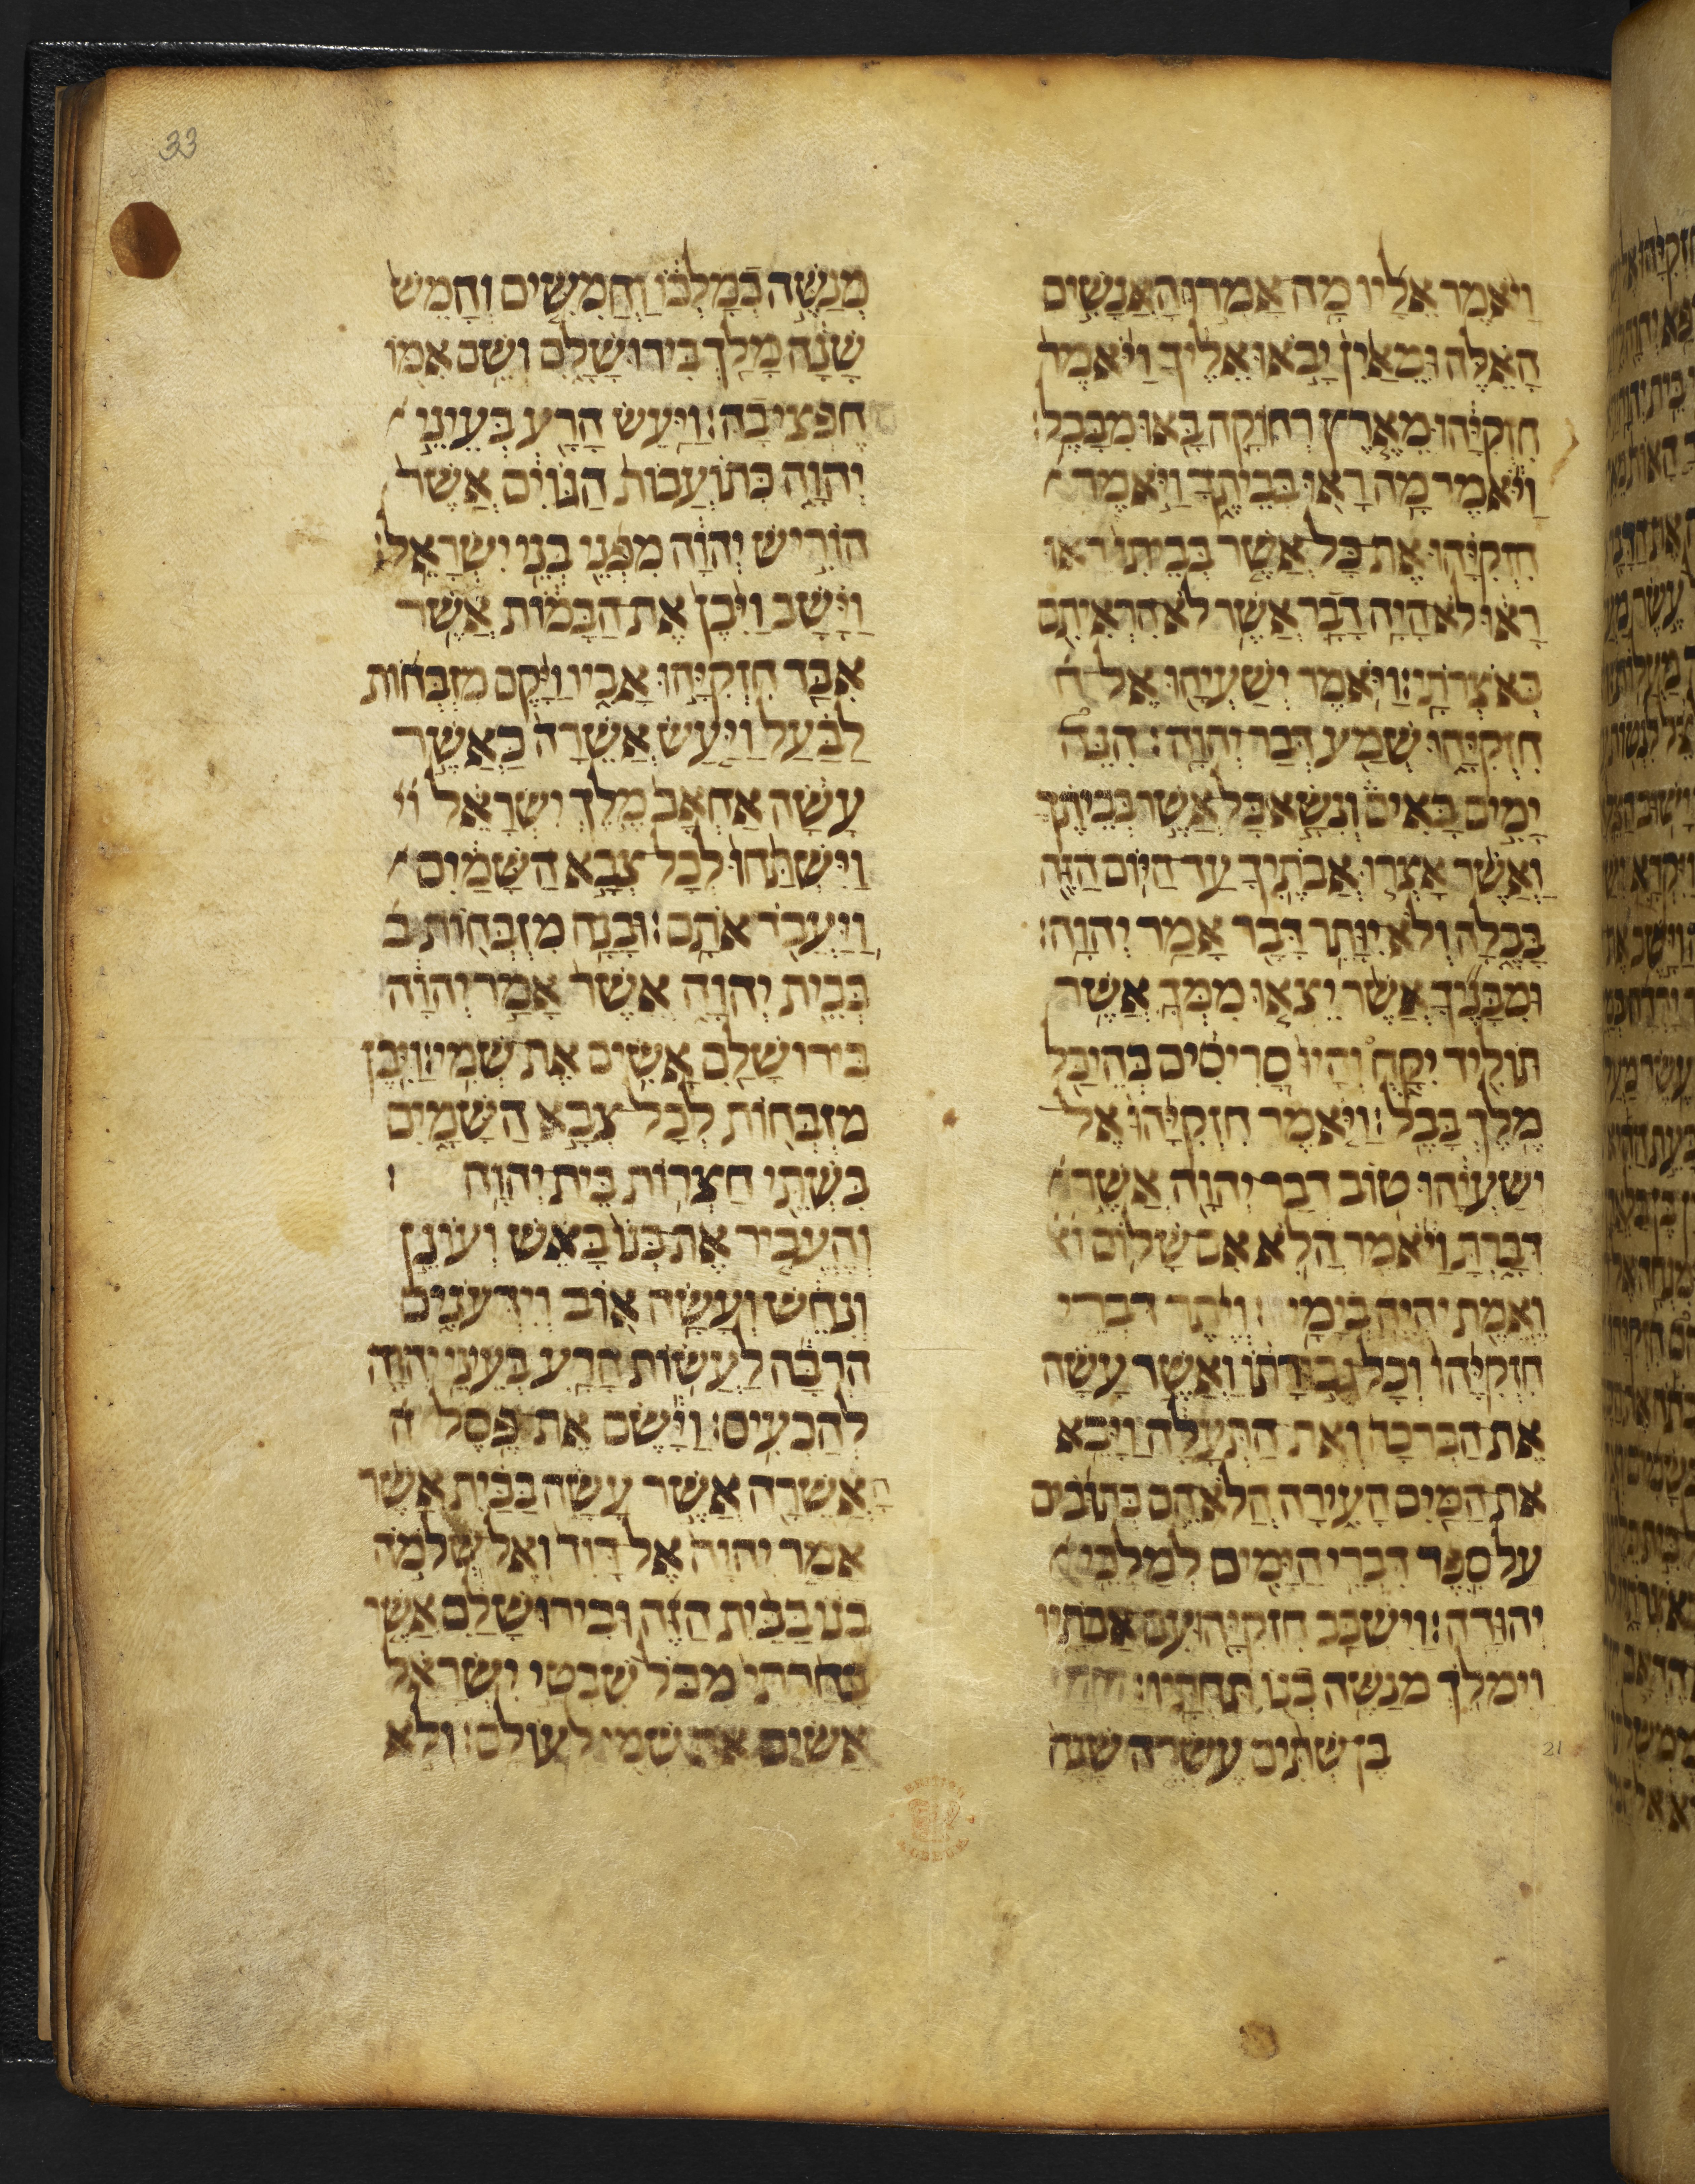 33
ויאמר אליו מה אמרו האנשים
האלה ומאין יבאו אליך ויאמר
חזקיהו מארץ רחוקה באו מבבל׃
ויאמר מה ראו בביתך ויאמר
חזקיהו את כל אשר בביתי ראו
ראו לא היה דבר אשר לא הראיתם
באצרתי׃ ויאמר ישעיהו אל ח
חזקיהו שמע דבר יהוה׃ הנה
ימים באים ונשא כל אשר בביתך
ואשר אצרו אבתיך עד היום הזה
בבלה ולא יותר דבר אמר יהוה׃
ומבניך אשר יצאו ממך אשר
תוליד יקח והיו סריסים בהיכל
מלך בבל׃ ויאמר חזקיהו אל
ישעיהו טוב דבר יהוה אשר
דברת ויאמר הלא אם שלום וא
ואמת יהיה בימי׃ ויתר דברי
חזקיהו וכל גבורתו ואשר עשה
את הברכה ואת התעלה ויבא
את המים העירה הלא הם כתובים
על ספר דברי הימים למלכי
יהודה׃ וישכב חזקיהו עם אבתיו
וימלך מנשה בנו תחתיו׃
בן שתים עשרה שנה
21
מנשה במלכו וחמשים וחמש
שנה מלך בירושלם ושם אמו
חפציבה׃ ויעש הרע בעיני
יהוה כתועבות הגוים אשר
הוריש יהוה מפני בני ישראל׃
וישב ויבן את הבמות אשר
אבד חזקיהו אביו ויקם מזבחות
לבעל ויעש אשרה כאשר
עשה אחאב מלך ישראל וי
וישתחו לכל צבא השמים
ויעבד אתם׃ ובנה מזבחות ב
בבית יהוה אשר אמר יהוה
בירושלם אשים את שמי׃ ויבן
מזבחות לכל צבא השמים
בשתי חצרות בית יהוה׃
והעביר את בנו באש ועונן
ונחש ועשה אוב וידענים
הרבה לעשות הרע בעיני יהוה
להכעים׃ וישם את פסל ה
האשרה אשר עשה בבית אשר
אמר יהוה אל דוד ואל שלמה
בנו בבית הזה ובירושלם אשר
בחרתי מכל שבטי ישראל
אשים את שמי לעולם׃ ולא
BRITISH MUSEUM